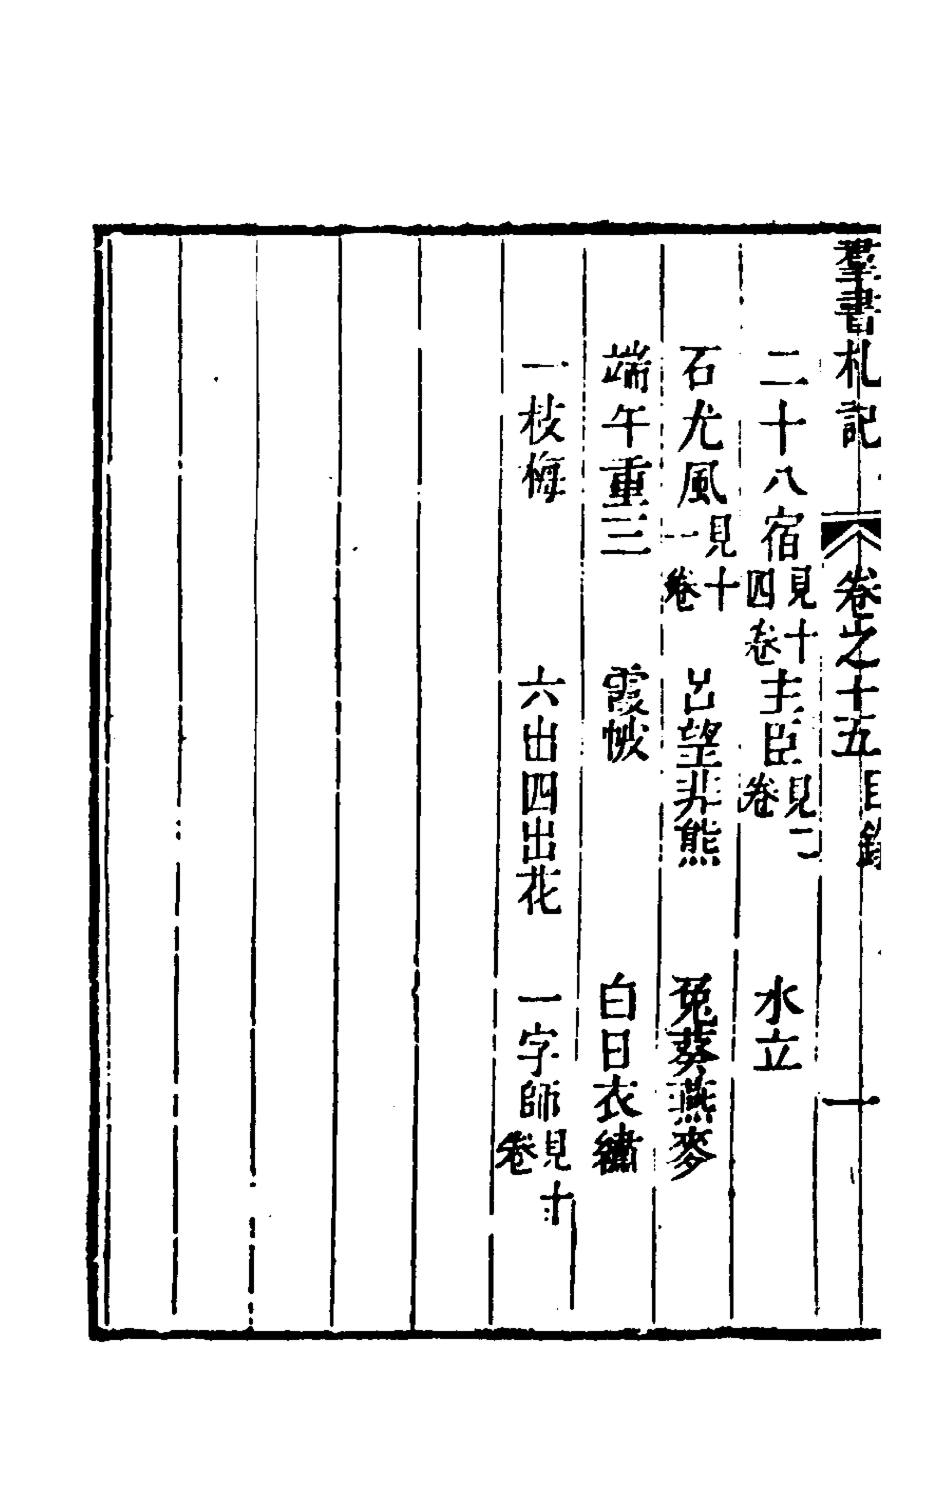 羣書札記 卷之十五 目錄 一
二十八宿 見十四卷 主臣 見二卷 水立
石尤風 見十一卷 呂望非熊 兔葵燕麥
端午重三 霞帔 白日衣繡
一枝梅 六出四出花 一字師 見十卷